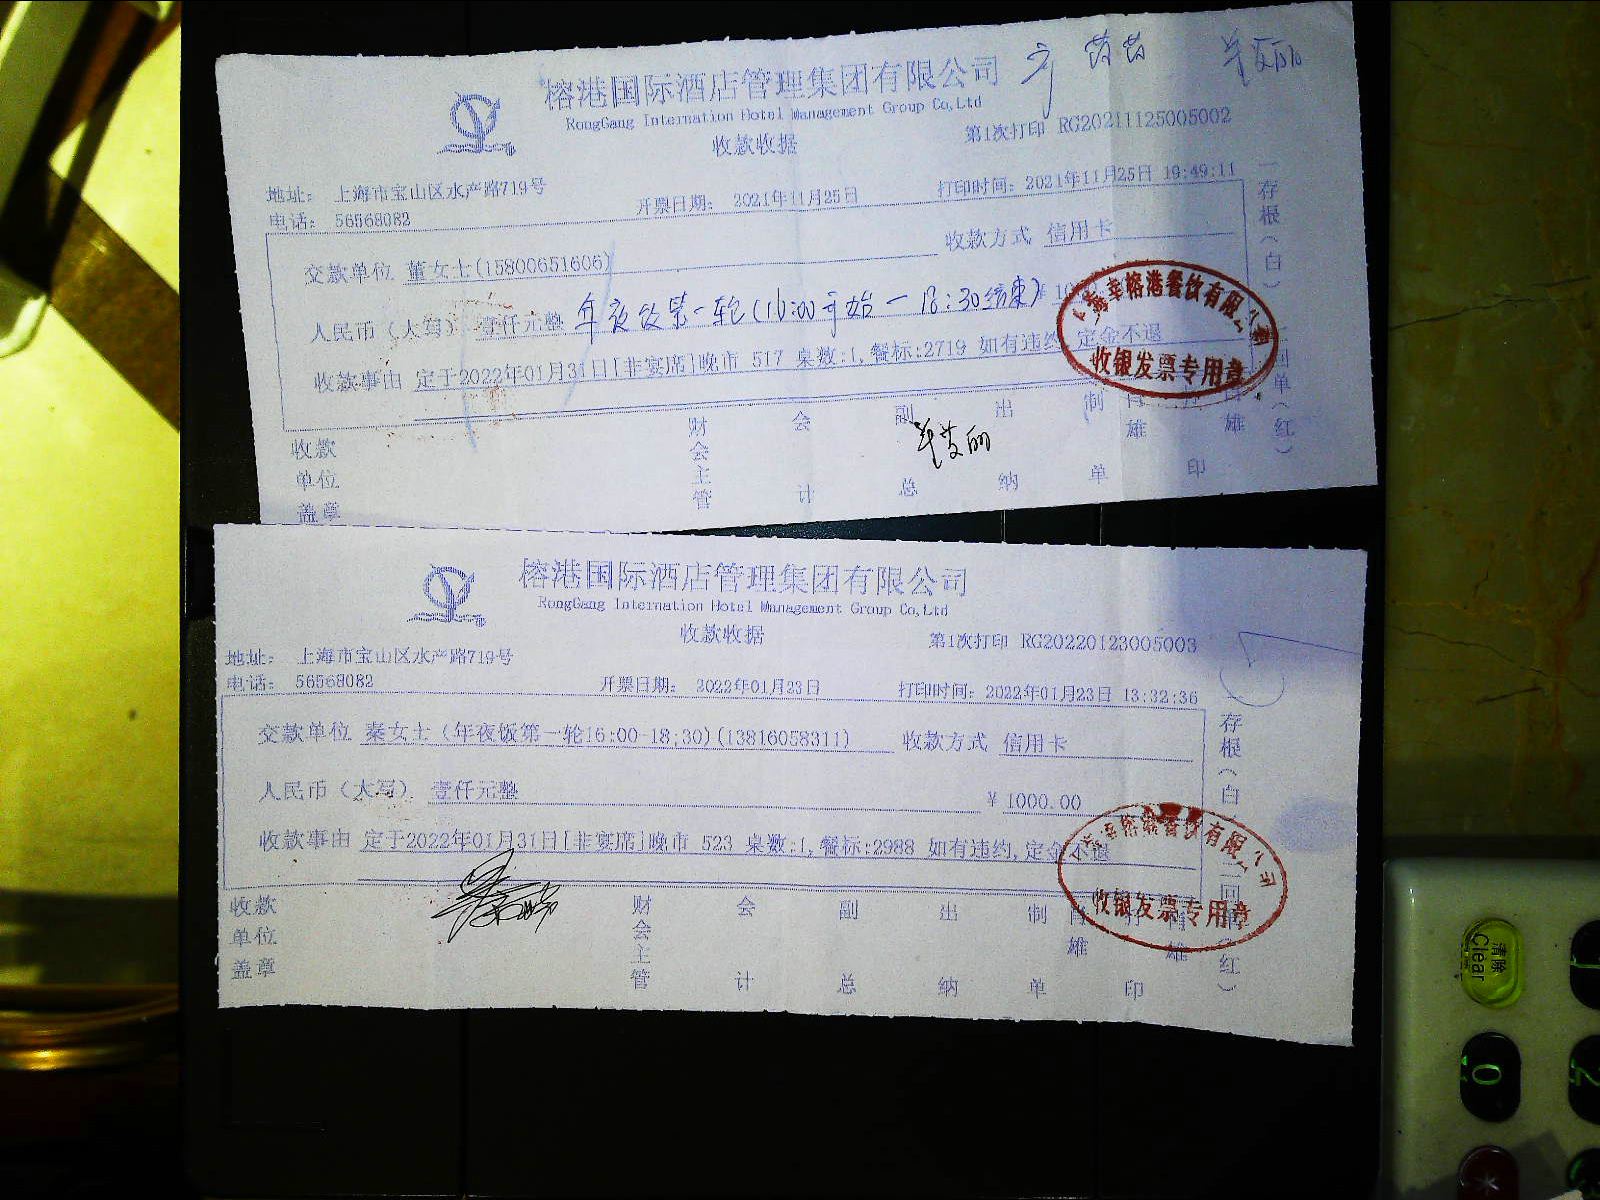 榕港国际酒店管理集团有限公司
RongGang Internation Hotel Management Group Co,Ltd
收款收据
第1次打印 RG20211125005002
地址： 上海市宝山区水产路719号
电话： 56568082
开票日期： 2021年11月25日
打印时间：2021年11月25日 19:49:11
交款单位 董女士(15800651606)
收款方式 信用卡
人民币（大写） 壹仟元整
年夜饭第一轮(16:00开始一18:30结束)
收款事由 定于2022年01月31日[非宴席]晚市 517 桌数:1,餐标:2719 如有违约,定金不退
收银发票专用章
存根（白）
回单（红）
收款单位盖章
财会主管
会计
副总
出纳
制单
榕港国际酒店管理集团有限公司
RongGang Internation Hotel Management Group Co,Ltd
收款收据
第1次打印 RG20220123005003
地址： 上海市宝山区水产路719号
电话： 56568082
开票日期： 2022年01月23日
打印时间：2022年01月23日 13:32:36
交款单位 秦女士（年夜饭第一轮16:00-18;30)(13816058311)
收款方式 信用卡
人民币（大写） 壹仟元整
￥ 1000.00
收款事由 定于2022年01月31日[非宴席]晚市 523 桌数:1,餐标:2988 如有违约,定金不退
收银发票专用章
存根（白
（红）
收款单位盖章
财会主管
会计
副总
出纳
制单
清除
Clear
0
2